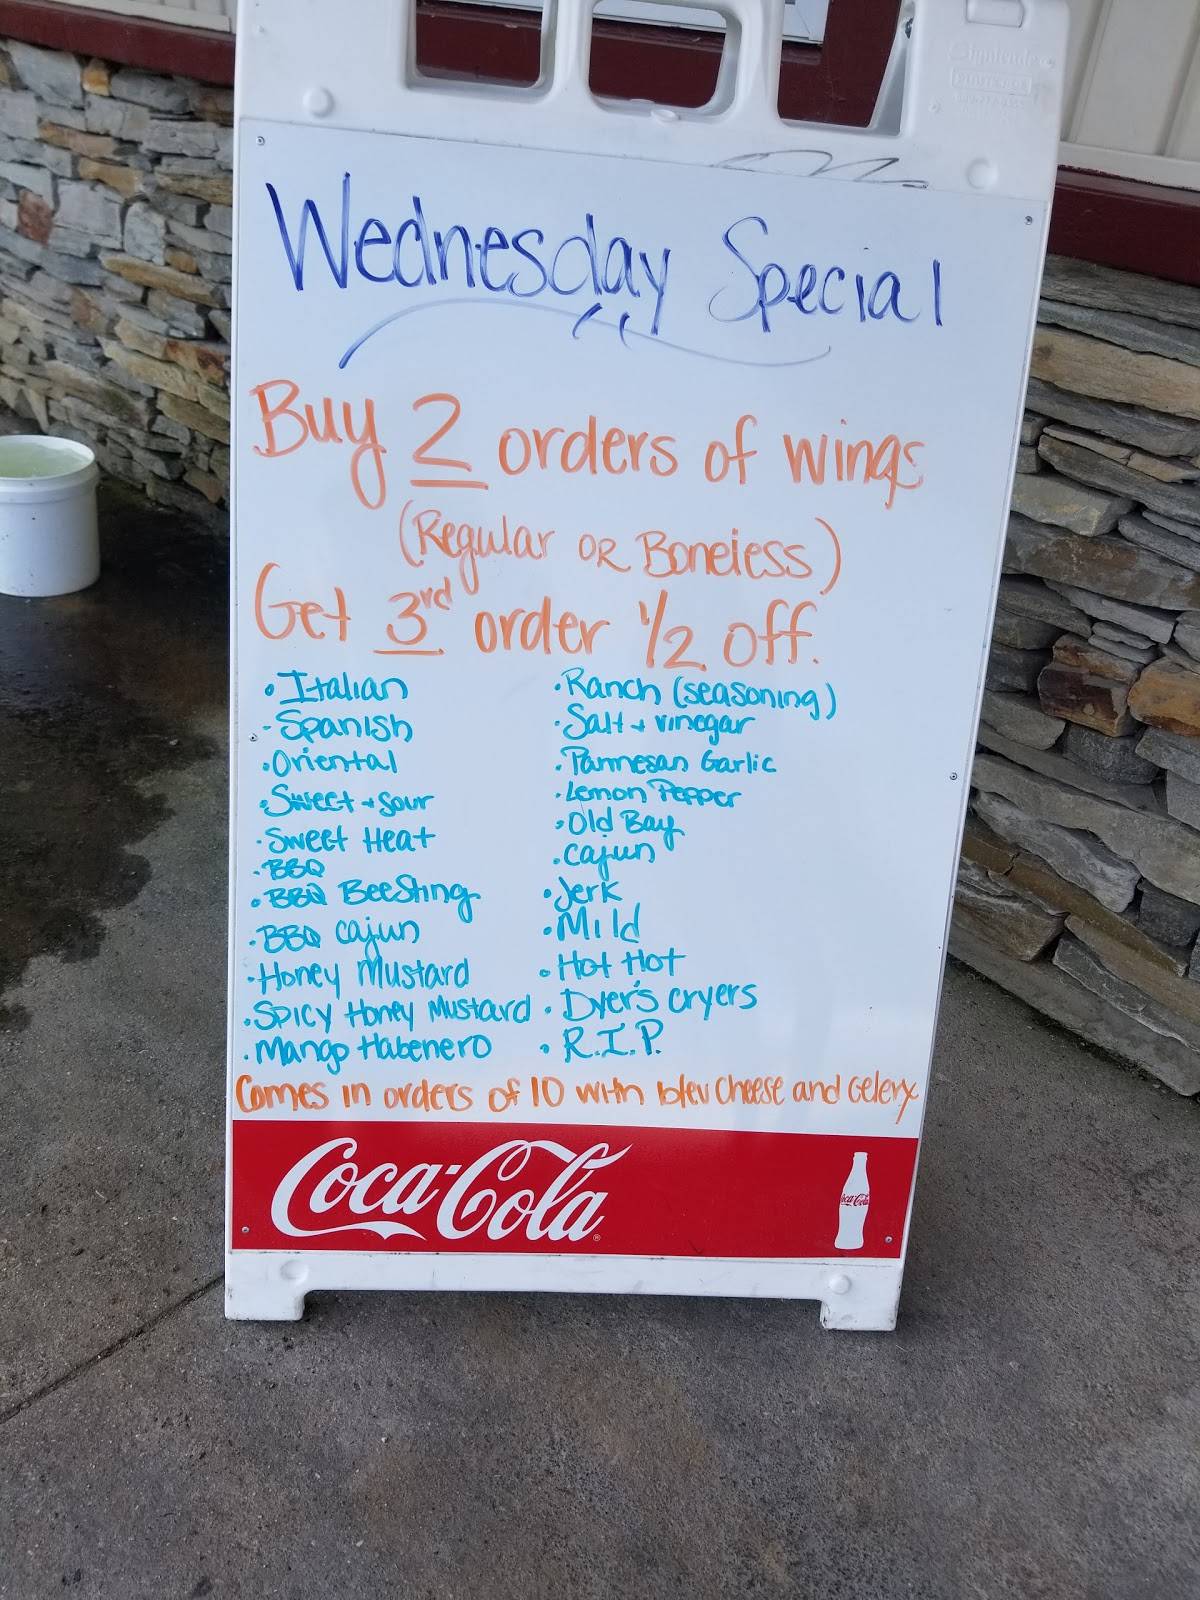 Wednesday Special
Buy 2 orders of wings
(Regular OR Boneless)
Get 3rd order 1/2 off.
• Italian
• Spanish
• Oriental
• Sweet + sour
• Sweet Heat
• BBQ
• BBQ BeeSting
• BBQ Cajun
• Honey Mustard
• SPICY Honey Mustard
• Mango Habenero
• Ranch (seasoning)
• Salt + vinegar
• Parmesan Garlic
• Lemon Pepper
• Old Bay
• Cajun
• Jerk
• Mild
• Hot Hot
• Dyer's cryers
• R.I.P.
Comes in orders of 10 with bleu Cheese and Celery
Coca-Cola
Coca-Cola